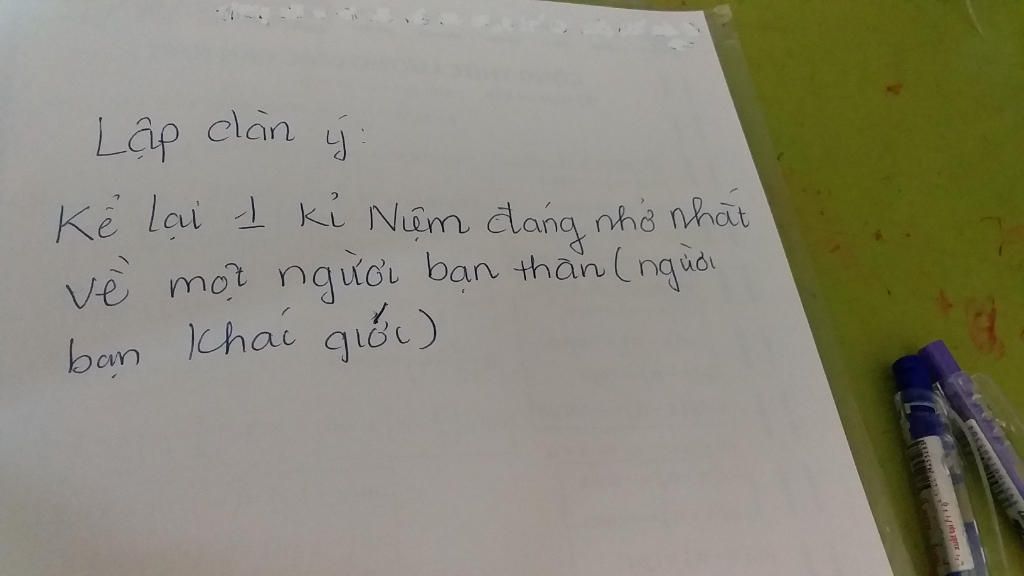 Lập dàn ý:
Kể lại 1 kỉ Niệm đáng nhớ nhất
về một người bạn thân (người
bạn khác giới)